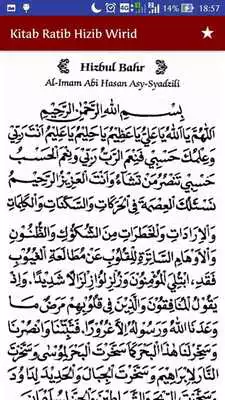 14% 18:57
Kitab Ratib Hizib Wirid
Hizbul Bahr
Al-Imam Abi Hasan Asy-Syadzili
بِسْمِ اللهِ الرَّحْمٰنِ الرَّحِيْمِ
اَللّٰهُمَّ يَا اَللهُ يَا عَلِيُّ يَا عَظِيْمُ يَا حَلِيْمُ يَا عَلِيْمُ اَنْتَ رَبِّيْ
وَعِلْمُكَ حَسْبِيْ فَنِعْمَ الرَّبُّ رَبِّيْ وَنِعْمَ الْحَسْبُ
حَسْبِيْ تَنْصُرُ مَنْ تَشَاءُ وَاَنْتَ الْعَزِيْزُ الرَّحِيْمُ
نَسْئَلُكَ الْعِصْمَةَ فِى الْحَرَكَاتِ وَالسَّكَنَاتِ وَالْكَلِمَاتِ
وَالْاِرَادَاتِ وَالْخَطَرَاتِ مِنَ الشُّكُوْكِ وَالظُّنُوْنِ
وَالْاَوْهَامِ السَّاتِرَةِ لِلْقُلُوْبِ عَنْ مُطَالَعَةِ الْغُيُوْبِ
فَقَدِ ابْتُلِيَ الْمُؤْمِنُوْنَ وَزُلْزِلُوْا زِلْزَالًا شَدِيْدًا وَاِذْ
يَقُوْلُ الْمُنَافِقُوْنَ وَالَّذِيْنَ فِيْ قُلُوْبِهِمْ مَرَضٌ مَا
وَعَدَنَا اللهُ وَرَسُوْلُهُ اِلَّا غُرُوْرًا فَثَبِّتْنَا وَانْصُرْنَا
وَسَخِّرْ لَنَا هٰذَا الْبَحْرَ كَمَا سَخَّرْتَ الْبَحْرَ لِمُوْسٰى وَسَخَّرْتَ
النَّارَ لِاِبْرَاهِيْمَ وَسَخَّرْتَ الْجِبَالَ وَالْحَدِيْدَ لِدَاوُدَ